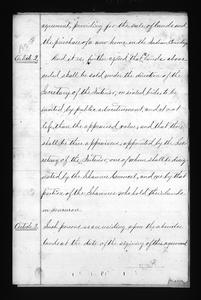 agreement, providing for the sale of lands and
the purchase of a new home in the Indian Territory
Article 2.
And it is further agreed that lands above
ceded shall be sold under the direction of the
Secretary of the Interior, on sealed bids, to be
invited by public advertisement, and at not
less than the appraised value, and that there
shall be three appraisers, appointed by the Sec-
retary of the Interior, one of whom shall be desig-
nated by the Shawnee Council, and one by that
portion of the Shawnees who hold their lands
in common.
Article 3.
Such persons as are residing upon the
lands at the date of the signing of this agreement